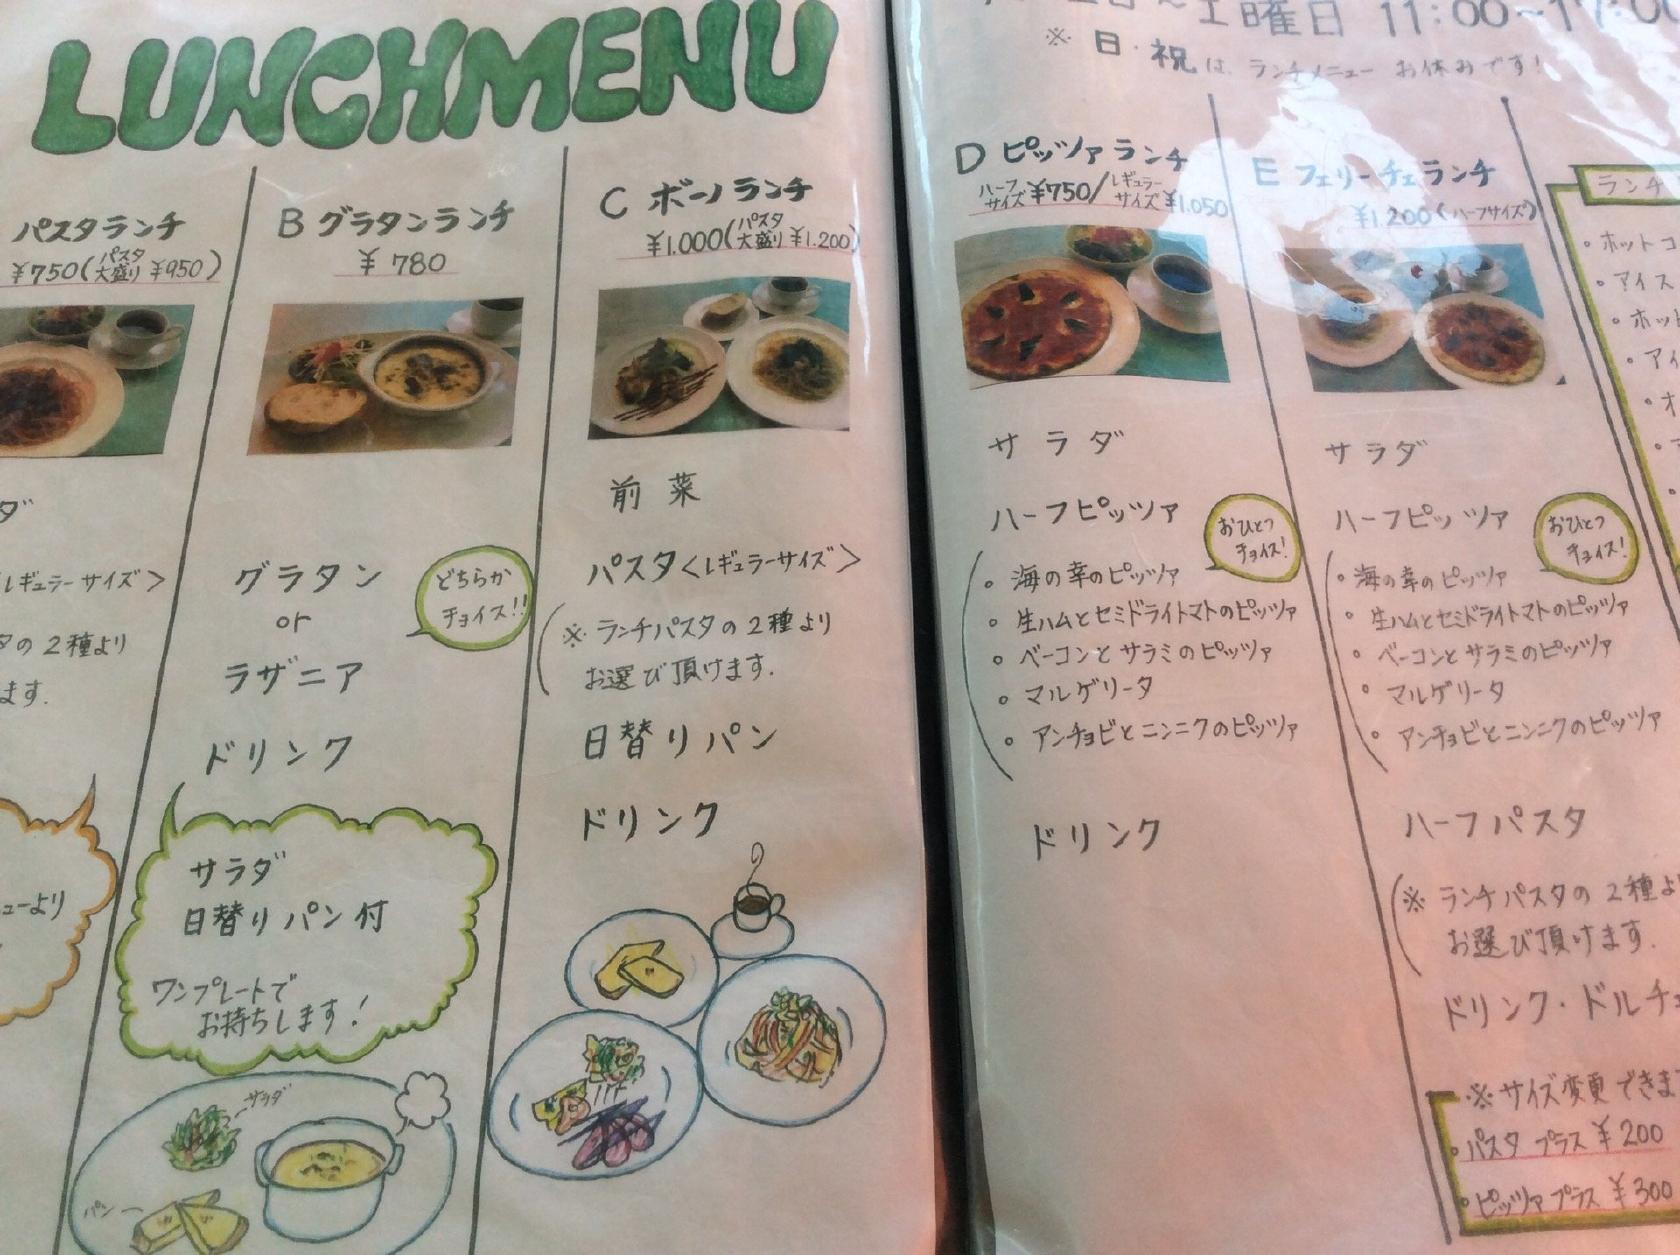 LUNCHMENU
パスタランチ
¥750(パスタ大盛り ¥950)
ダ
レギュラーサイズ>
タの2種より
ます.
ューより
B グラタンランチ
¥ 780
グラタン
or
ラザニア
どちらか
チョイス!!
ドリンク
サラダ
日替りパン付
ワンプレートで
お持ちします!
サラダ
パン
C ボーノランチ
¥1.000(パスタ大盛り ¥1.200)
前菜
パスタ<レギュラーサイズ>
※ ランチパスタの2種より
お選び頂けます.
日替りパン
ドリンク
曜日 11:00~17:00
※ 日・祝は、ランチメニュー お休みです!
D ピッツァランチ
ハーフサイズ ¥750/レギュラーサイズ ¥1.050
サラダ
ハーフピッツァ
おひとつ
チョイス!
• 海の幸のピッツァ
• 生ハムとセミドライトマトのピッツァ
• ベーコンとサラミのピッツァ
• マルゲリータ
• アンチョビとニンニクのピッツァ
ドリンク
E フェリーチェランチ
¥1.200(ハーフサイズ)
サラダ
ハーフピッツァ
おひとつ
チョイス!
• 海の幸のピッツァ
• 生ハムとセミドライトマトのピッツァ
• ベーコンとサラミのピッツァ
• マルゲリータ
• アンチョビとニンニクのピッツァ
ハーフパスタ
※ ランチパスタの2種よ
お選び頂けます.
ドリンク・ドルチ
※サイズ変更できま
• パスタ プラス ¥200
• ピッツァ プラス ¥300
ランチ
• ホットコ
• アイス
• ホット
• アイ